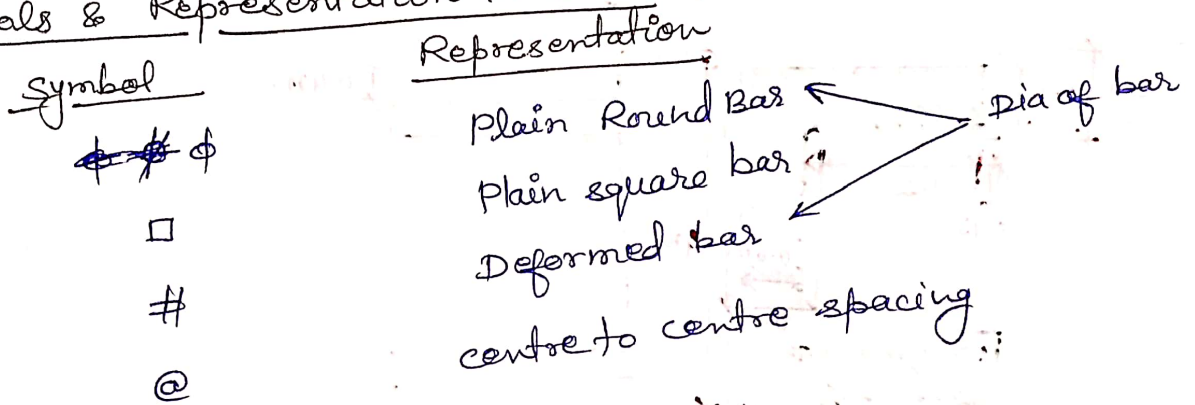 als & Representation
Symbol Representation
ϕ Plain Round Bar Dia of bar
□ Plain square bar
# Deformed bar
@ centre to centre spacing